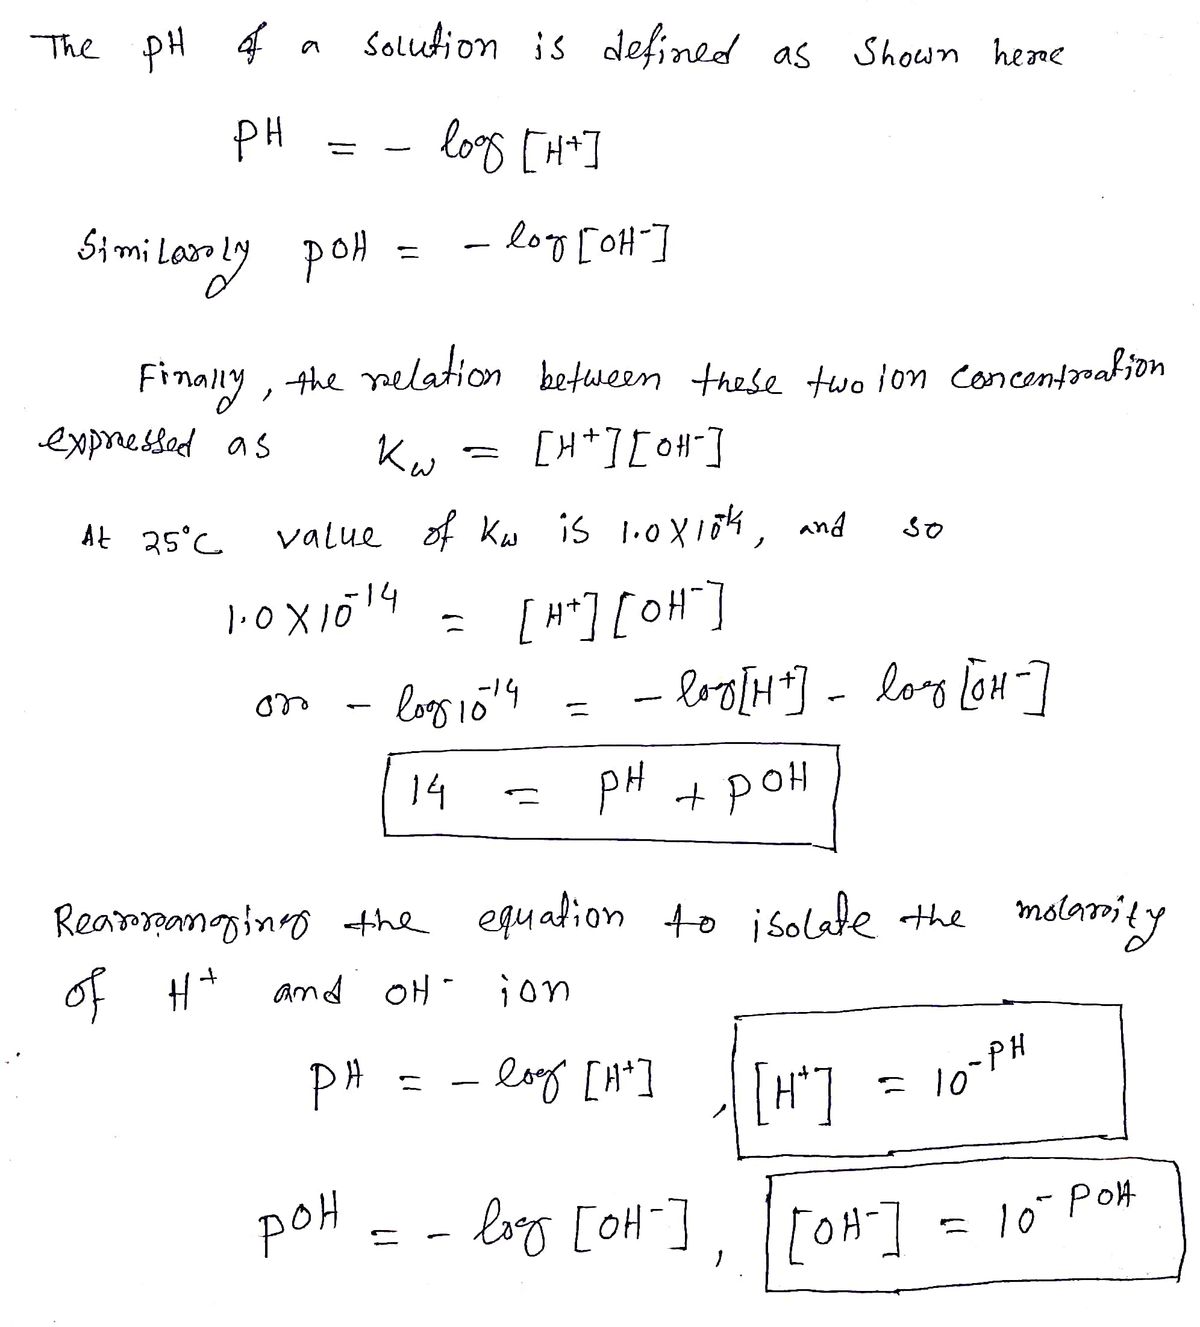 The pH of a solution is defined as shown here
pH = - log [H+]
Similarly pOH = - log [OH-]
Finally, the relation between these two ion concentration
expressed as Kw = [H+][OH-]
At 25°C value of Kw is 1.0 X 10-14, and so
1.0 X 10-14 = [H+][OH-]
or - log 10-14 = - log[H+] - log [OH-]
14 = pH + pOH
Rearranging the equation to isolate the molarity
of H+ and OH- ion
pH = - log [H+] , [H+] = 10-pH
pOH = - log [OH-] , [OH-] = 10-pOH